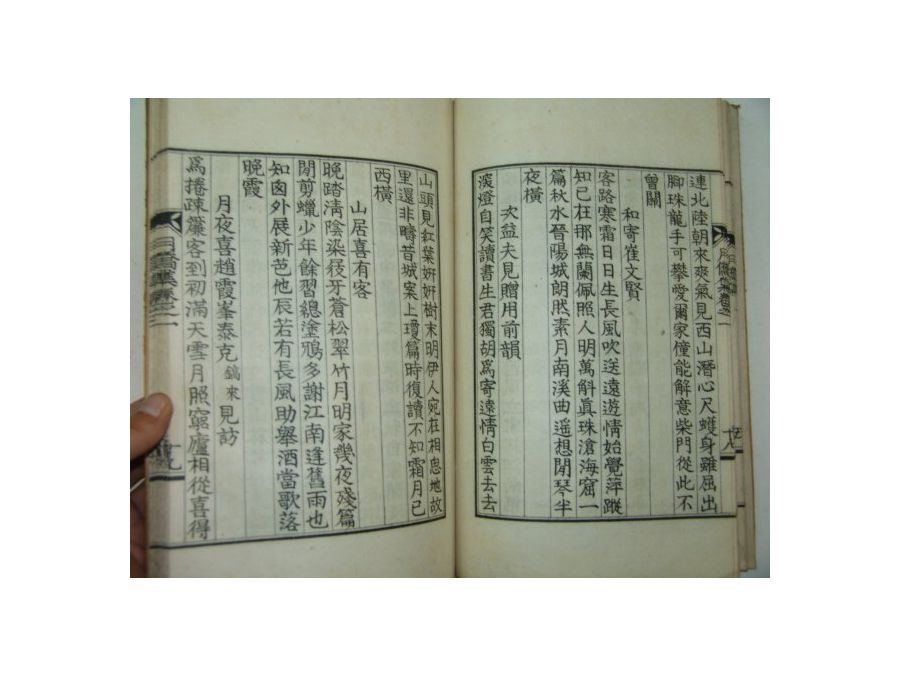 連北陸朝來爽氣見西山潛心尺蠖身雖屈出
脚珠龍手可攀愛爾家僮能解意柴門從此不
曾關
和寄崔文賢
客路寒霜日日生長風吹送遠遊情始覺萍蹤
知已在那無蘭佩照人明萬斛眞珠滄海窟一
篇秋水晉陽城朗然素月南溪曲遥想閒琴半
夜橫
次益夫見贈用前韻
溪燈自笑讀書生君獨胡爲寄遠情白雲去去
山頭見紅葉姸姸樹末明伊人宛在相思地故
里還非疇昔城案上瓊篇時復讀不知霜月已
西橫
山居喜有客
晩踏淸陰染屐牙蒼松翠竹月明家幾夜殘篇
閒剪蠟少年餘習總塗鴉多謝江南逢舊雨也
知囱外展新芭他辰若有長風助舉酒當歌落
晩霞
月夜喜趙霞峯泰克鎬來見訪
爲捲疎簾客到初滿天雪月照窮廬相從喜得